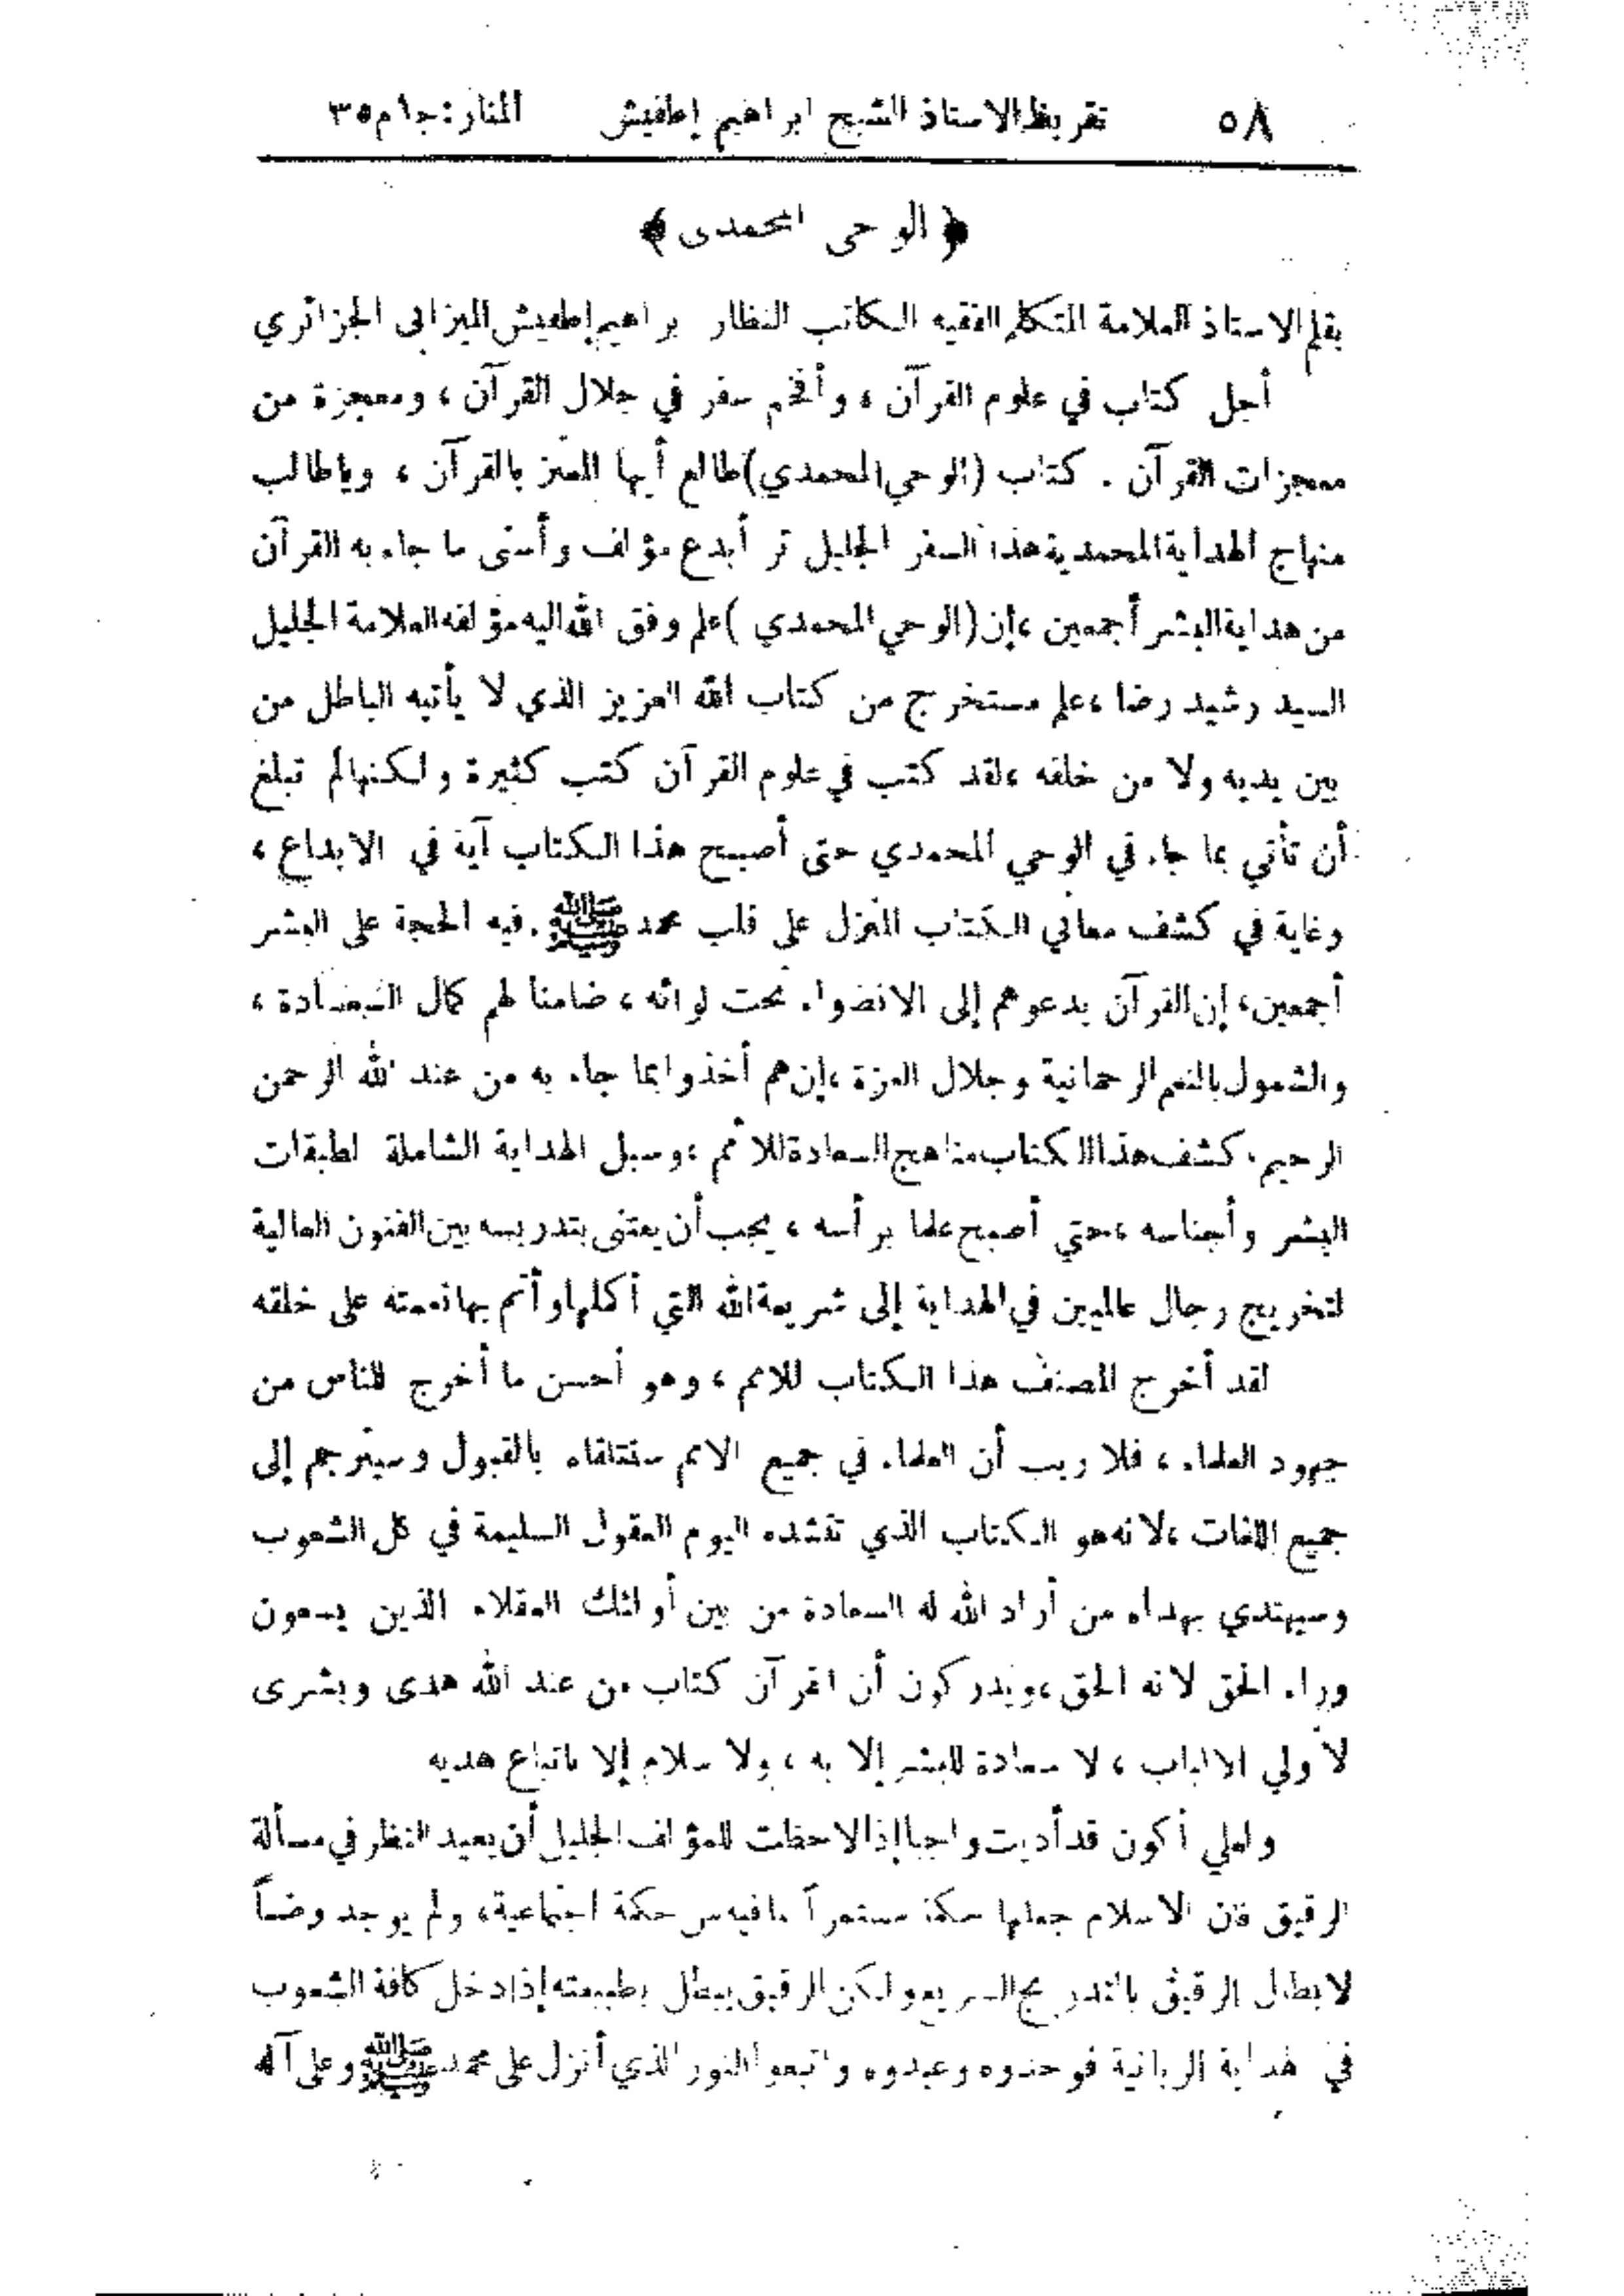 ٥٨ تقريظ الاستاذ الشيخ ابراهيم إطفيش المنار: ج١ م٣٥
﴿ الوحي المحمدى ﴾
بقلم الاستاذ العلامة المتكلم الفقيه الكاتب النظار براهيم إطفيش الميزابى الجزائري
أجل كتاب في علوم القرآن ، وأفخم سفر في جلال القرآن ، ومعجزة من
معجزات القرآن . كتاب (الوحي المحمدي) طالع أيها المعتز بالقرآن ، ويا طالب
منهاج الهداية المحمدية هذا السفر الجليل تر أبدع مؤلف وأسنى ما جاء به القرآن
من هداية البشر أجمعين ، إن (الوحي المحمدي ) علم وفق الله اليه مؤلفه العلامة الجليل
السيد رشيد رضا ، علم مستخرج من كتاب الله العزيز الذي لا يأتيه الباطل من
بين يديه ولا من خلفه ، لقد كتب في علوم القرآن كتب كثيرة ولكنها لم تبلغ
أن تأتي بما جاء في الوحي المحمدي حتى أصبح هذا الكتاب آية في الابداع ،
وغاية في كشف معاني الكتاب المنزل على قلب محمد ﷺ . فيه الحجة على البشر
أجمعين ، إن القرآن يدعوهم إلى الانضواء تحت لوائه ، ضامنا لهم كمال السعادة ،
والشمول بالنعم الرحمانية وجلال العزة ، إن هم أخذوا بما جاء به من عند الله الرحمن
الرحيم . كشف هذا الكتاب مناهج السعادة للأمم ، وسبل الهداية الشاملة لطبقات
البشر وأجناسه ، حتي أصبح علما برأسه ، يجب أن يعتنى بتدريسه بين الفنون العالية
لتخريج رجال عالميين في الهداية إلى شريعة الله التي أكملها وأتم بها نعمته على خلقه
لقد أخرج المصنف هذا الكتاب للامم ، وهو أحسن ما أخرج للناس من
جهود العلماء ، فلا ريب أن العلماء في جميع الامم ستتلقاه بالقبول وسيترجم إلى
جميع اللغات ، لانه هو الكتاب الذي تنشده اليوم العقول السليمة في كل الشعوب
وسيهتدي بهداه من أراد الله له السعادة من بين أولئك العقلاء الذين يسعون
وراء الحق لانه الحق ، ويدركون أن القرآن كتاب من عند الله هدى وبشرى
لأولي الالباب ، لا سعادة للبشر إلا به ، ولا سلام إلا باتباع هديه
ولعلي أكون قد أديت واجبا إذا لاحظت للمؤلف الجليل أن يعيد النظر في مسألة
الرقيق فان الاسلام جعلها حكما مستمراً لما فيه من حكمة اجتماعية ، ولم يوجد وضعاً
لابطال الرقيق بالتدريج السريع ولكن الرقيق يبطل بطبيعته إذا دخل كافة الشعوب
في الهداية الربانية فوحدوه وعبدوه واتبعوا النور الذي أنزل على محمد ﷺ وعلى آله